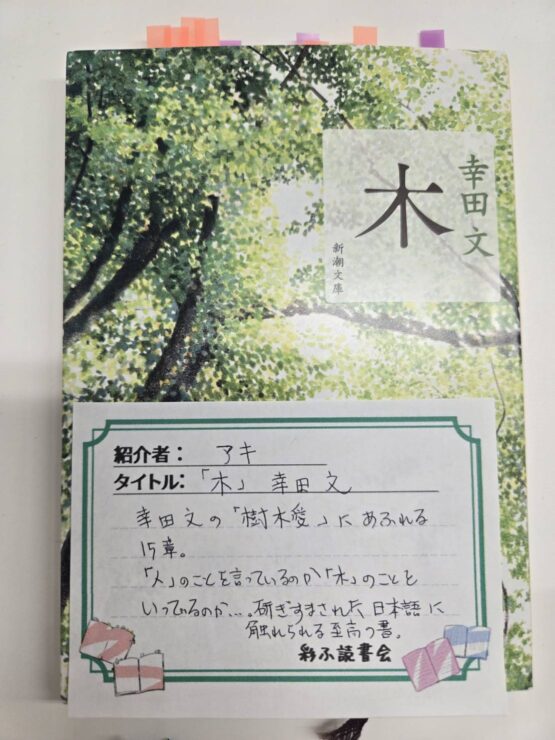 木
幸田 文
新潮文庫
紹介者： アキ
タイトル： 「木」 幸田 文
幸田文の「樹木愛」にあふれる
15章。
「人」のことを言っているのか「木」のことを
いっているのか…。研ぎすまされた日本語に
触れられる至高の書。
彩ふ読書会